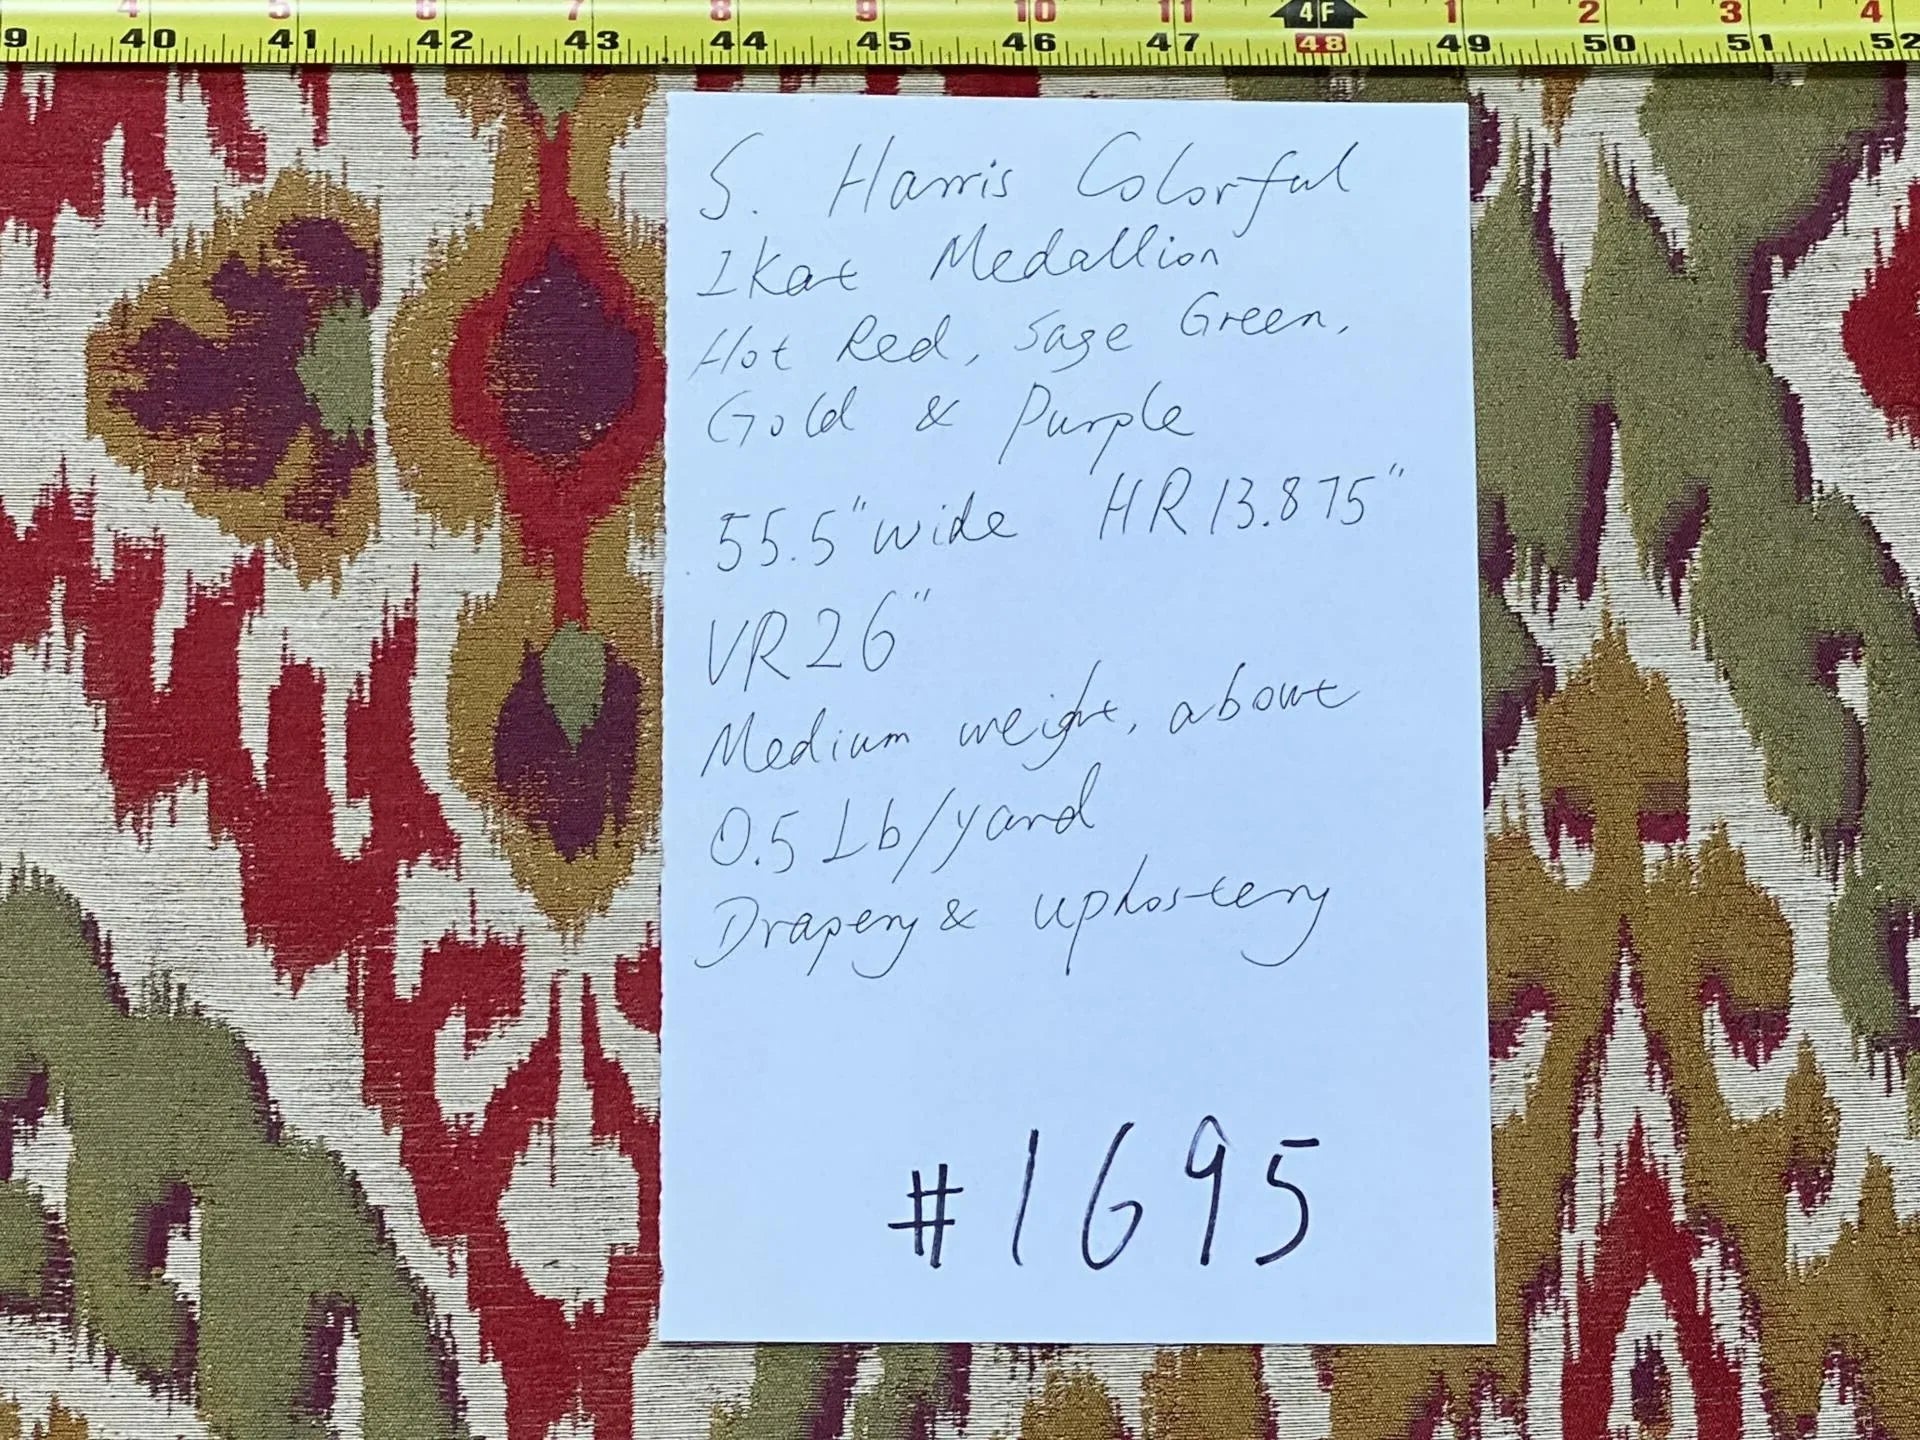 4 5 6 7 8 9 10 11 4F 1 2 3 4
9 40 41 42 43 44 45 46 47 48 49 50 51 52
S. Harris Colorful
Ikat Medallion
Hot Red, Sage Green,
Gold & Purple
55.5" wide HR 13.875"
VR 26"
Medium weight, about
0.5 Lb/yard
Drapery & upholstery
#1695